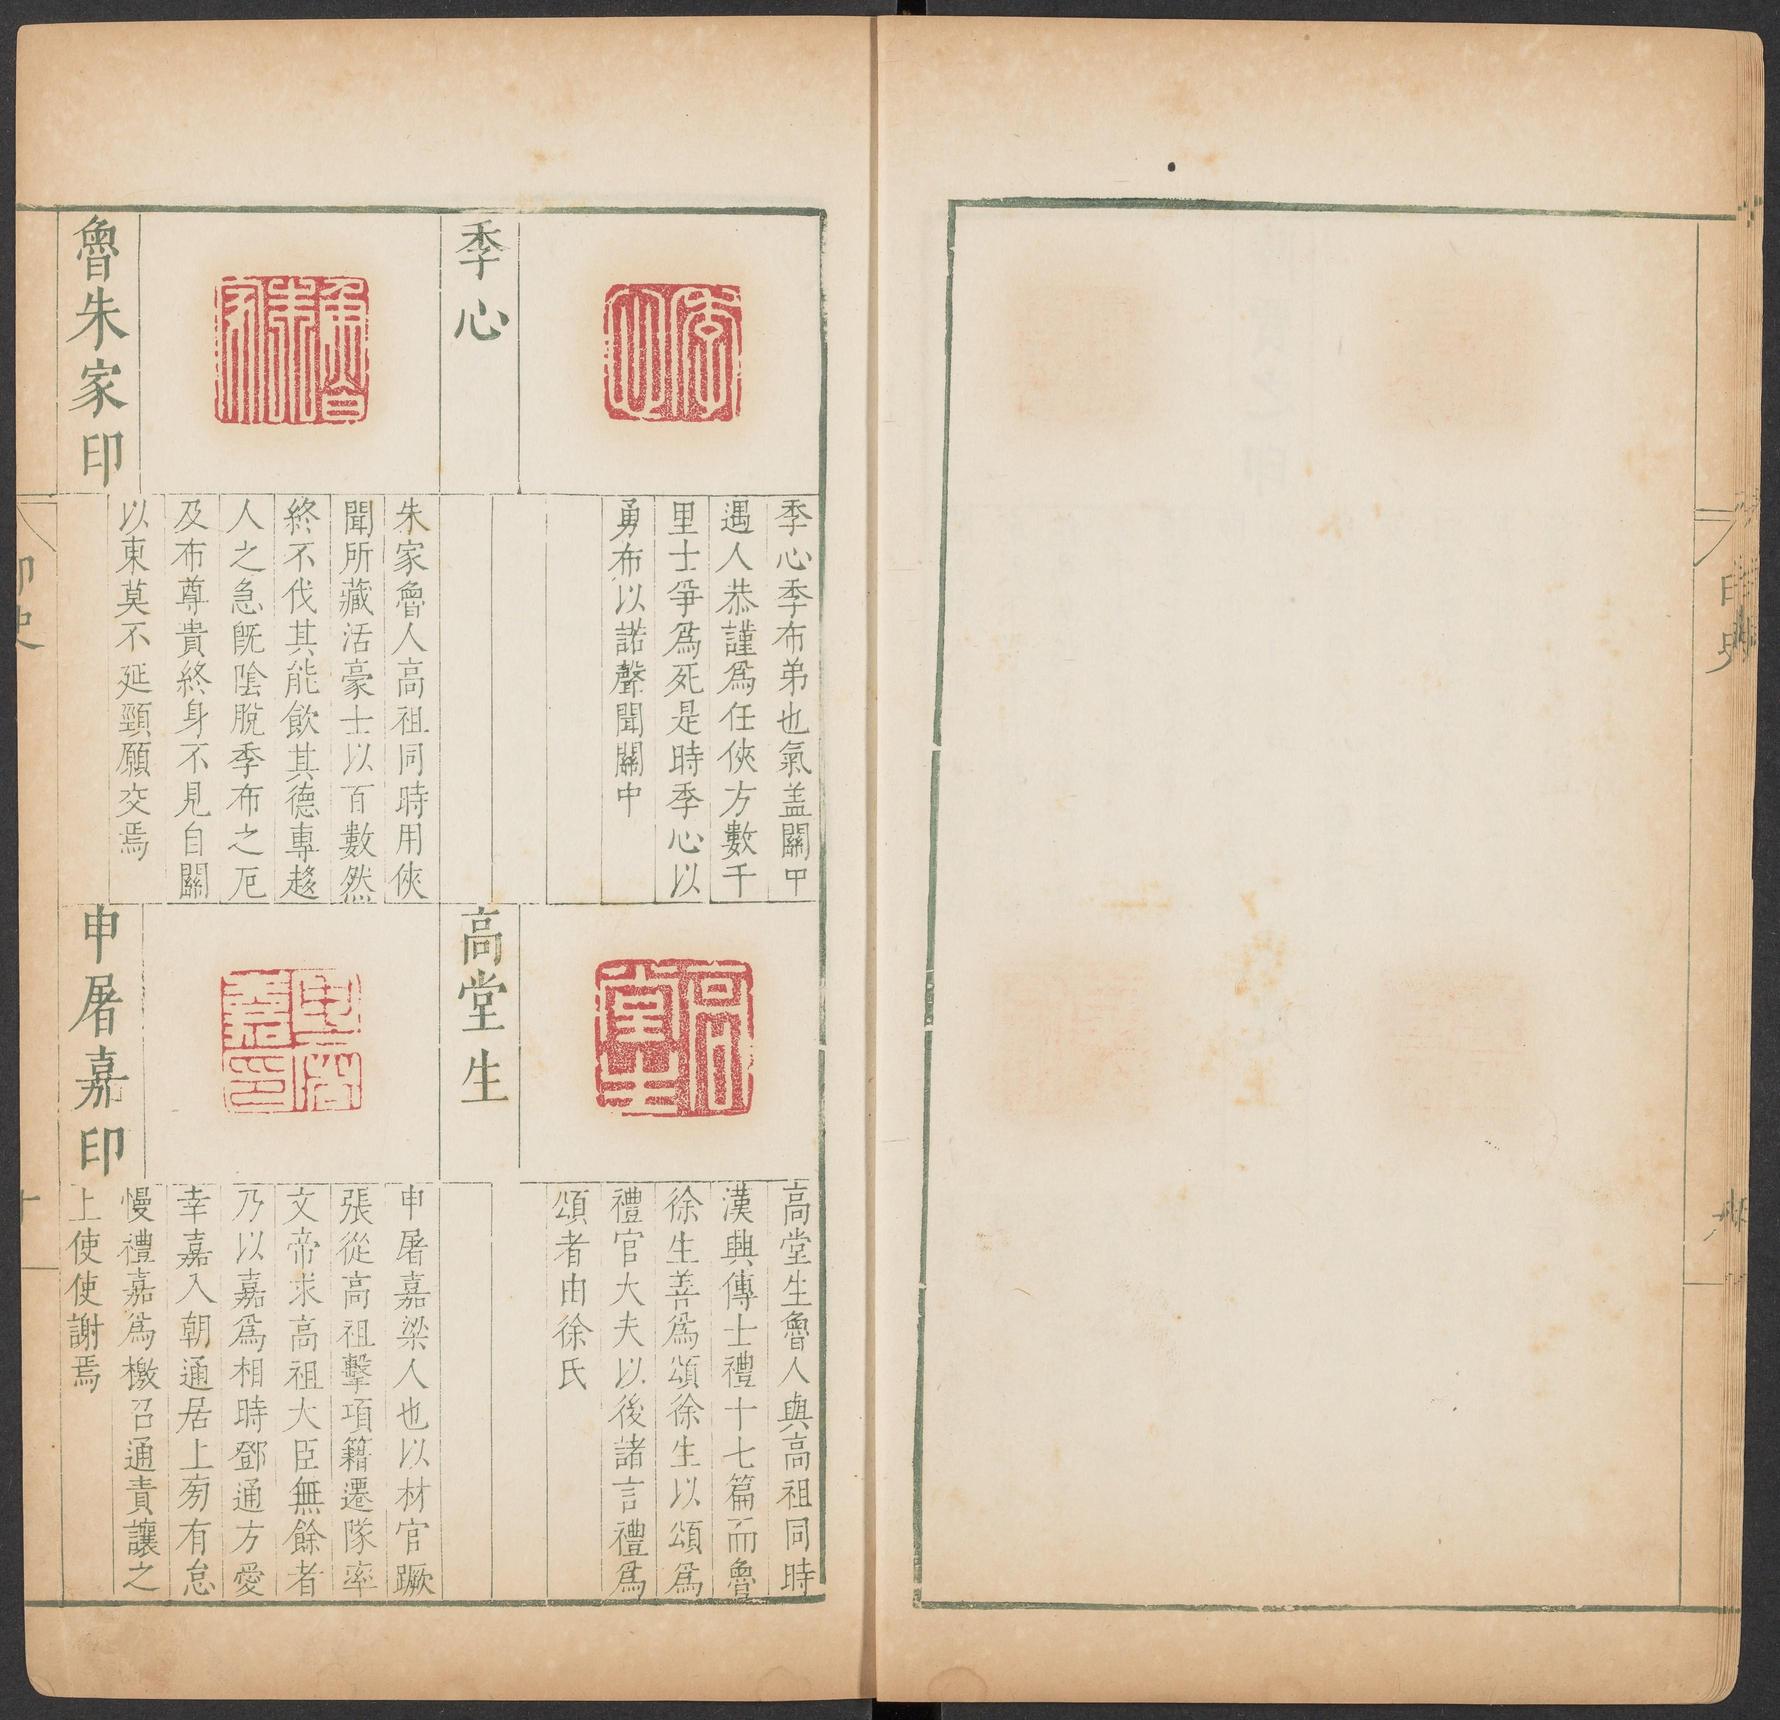 季心
季心季布弟也氣盖關中
遇人恭謹爲任俠方數千
里士爭爲死是時季心以
勇布以諾聲聞關中
魯朱家印
朱家魯人高祖同時用俠
聞所藏活豪士以百數然
終不伐其能飲其德專趍
人之急旣陰脫季布之厄
及布尊貴終身不見自關
以東莫不延頸願交焉
高堂生
高堂生魯人與高祖同時
漢興傳士禮十七篇而魯
徐生善爲頌徐生以頌爲
禮官大夫以後諸言禮爲
頌者由徐氏
申屠嘉印
申屠嘉梁人也以材官蹶
張從高祖擊項籍遷隊率
文帝求高祖大臣無餘者
乃以嘉爲相時鄧通方愛
幸嘉入朝通居上旁有怠
慢禮嘉爲檄召通責讓之
上使使謝焉
印史